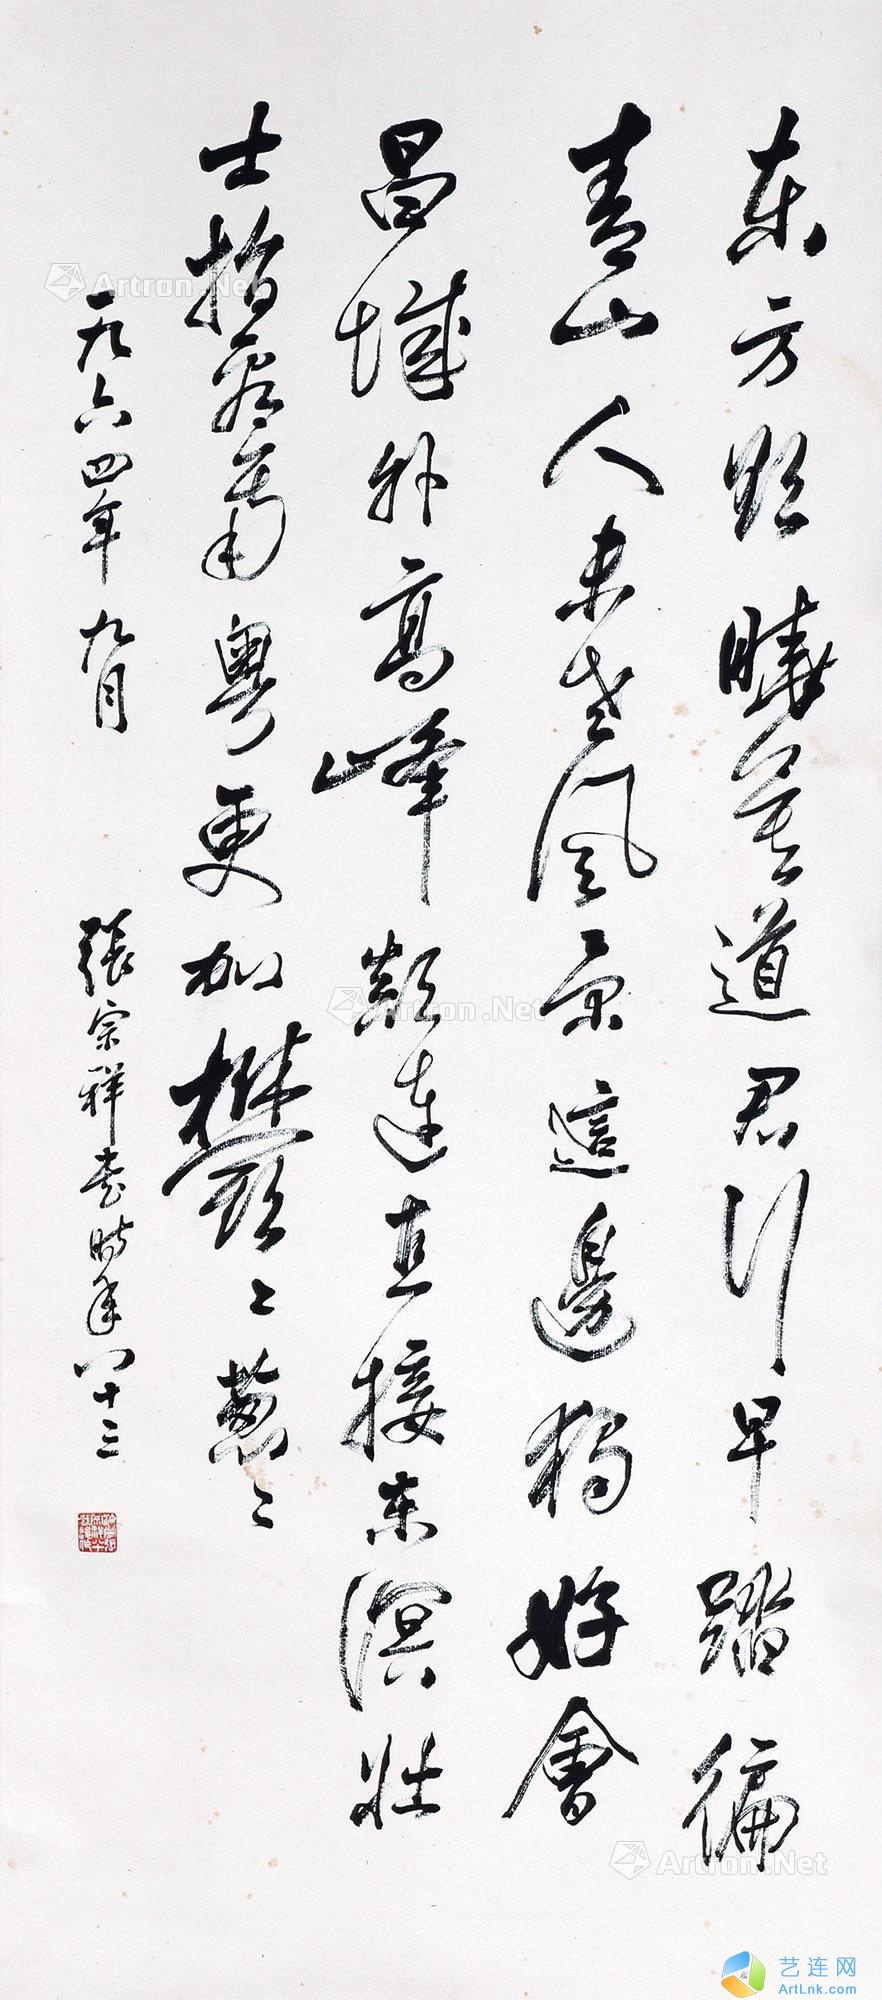 東方欲曉莫道君行早踏徧
青山人未老風景這邊獨好會
昌城外高峰顛連直接東溟壯
士指看南粵更加欝〻葱〻
一九六四年九月 張宗祥書時年八十三
Artron.Net
Artron.Net
Artron.Net
艺连网
ArtLnk.com